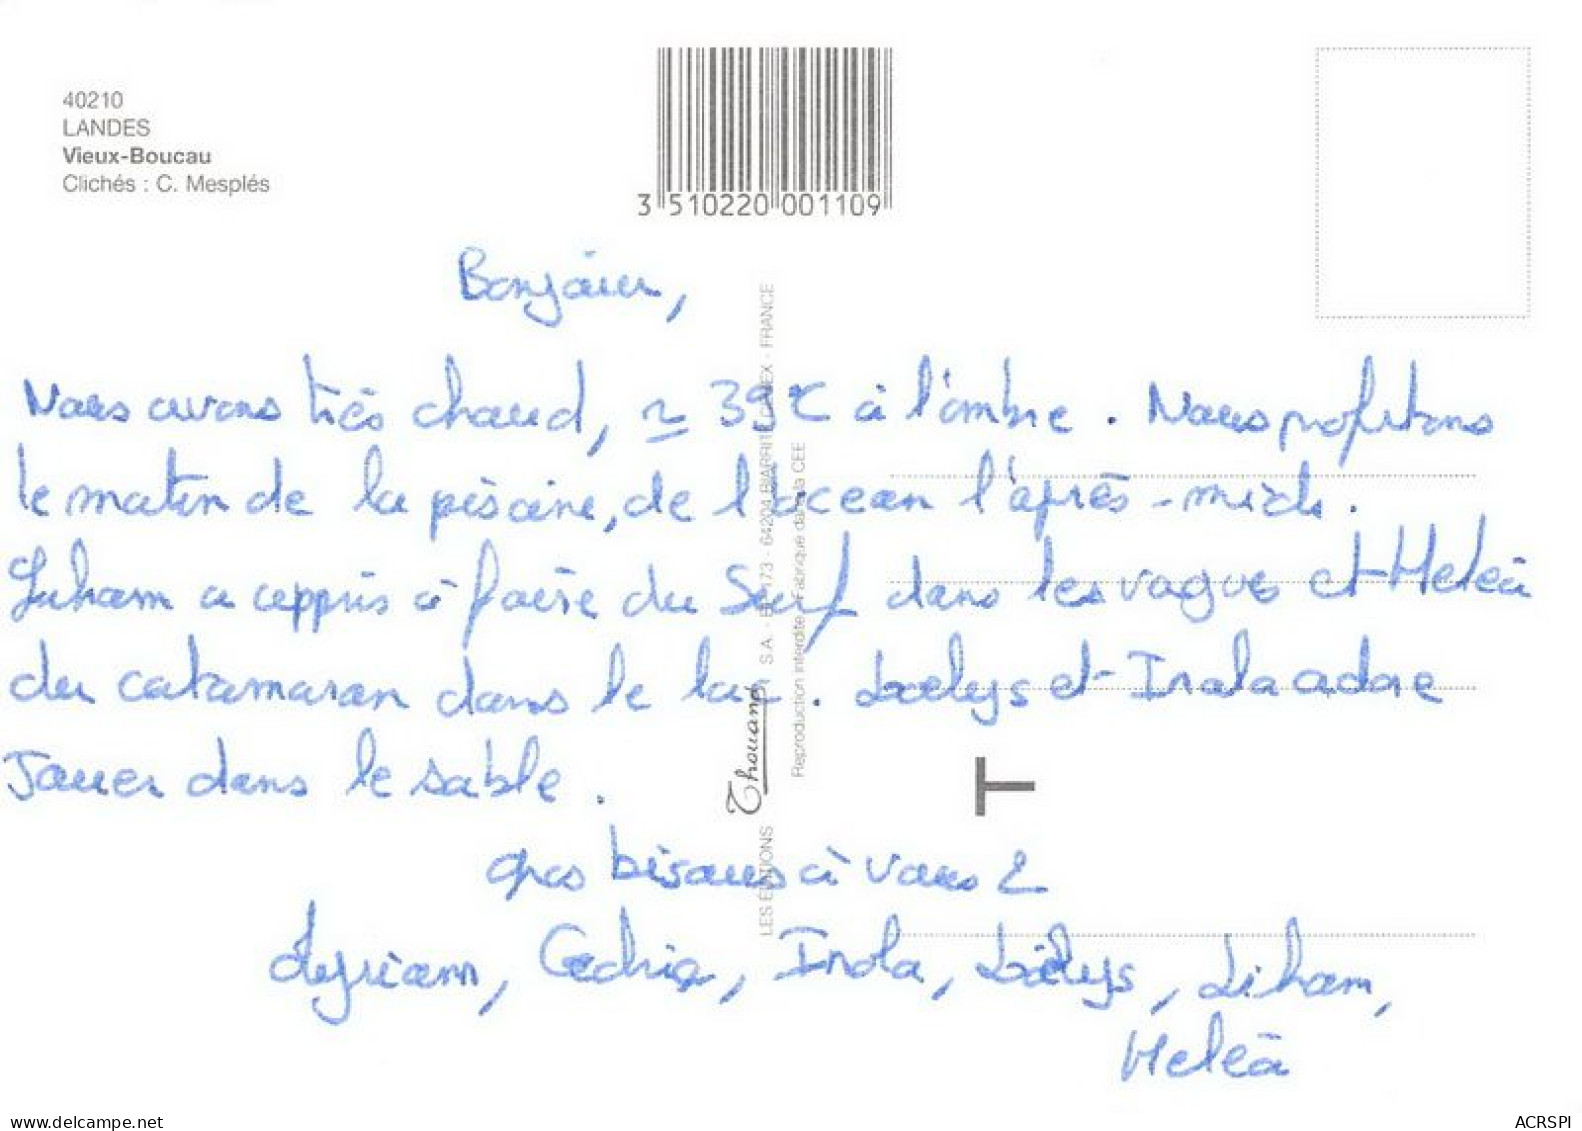 40210
LANDES
Vieux-Boucau
Clichés : C. Mesplés
3 510220 001109
Bonjour,
Nous avons très chaud, ≃ 39°C à l'ombre. Nous profitons
le matin de la piscine, de l'ocean l'après-midi.
Liham a appris à faire du Surf dans les vagues et Heleä
du catamaran dans le lac. Loelys et Inola adore
Jouer dans le sable.
gros bisous à vous 2
Inola, Liham,
Heleä
LES EDITIONS Thouand S.A. - BP 173 - 64204 BIARRITZ CEDEX - FRANCE
Reproduction interdite - Fabriqué dans la CEE
T
www.delcampe.net
ACRSPI